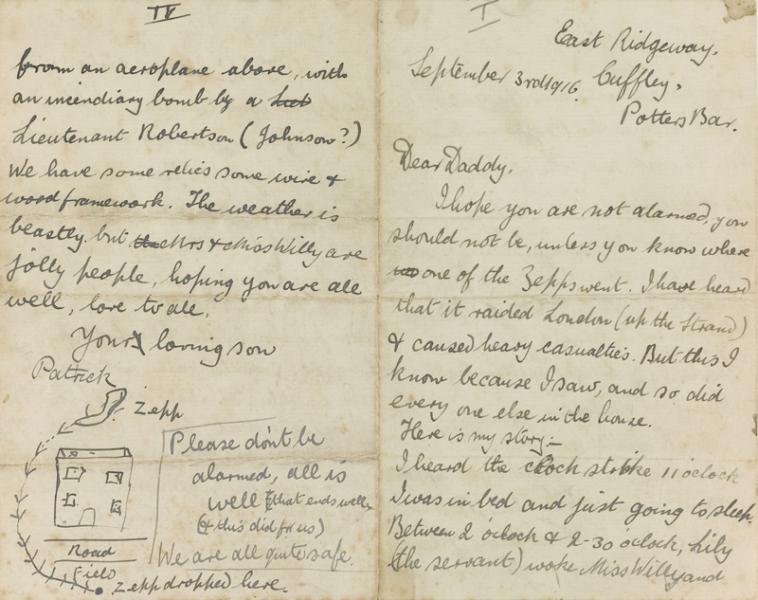 IV
from an aeroplane above, with
an incendiary bomb by a Luet
Lieutenant Robertson (Johnson?)
We have some relics some wire &
wood framework. The weather is
beastly but the Mrs & Miss Willy are
jolly people, hoping you are all
well, love to all.
Yours loving son
Patrick
Zepp
Please don't be
alarmed, all is
well (that ends well
(& this did for us)
We are all quite safe.
Road
Field
Zepp dropped here.
I
East Ridgeway,
September 3rd 1916. Cuffley,
Potters Bar.
Dear Daddy,
I hope you are not alarmed, you
should not be, unless you know where
one of the Zepps went. I have heard
that it raided London (up the Strand)
& caused heavy casualties. But this I
know because I saw, and so did
every one else in the house.
Here is my story:-
I heard the clock strike 11 o'clock
I was in bed and just going to sleep.
Between 2 o'clock & 2-30 o'clock, Lily
(the servant) woke Miss Willy and